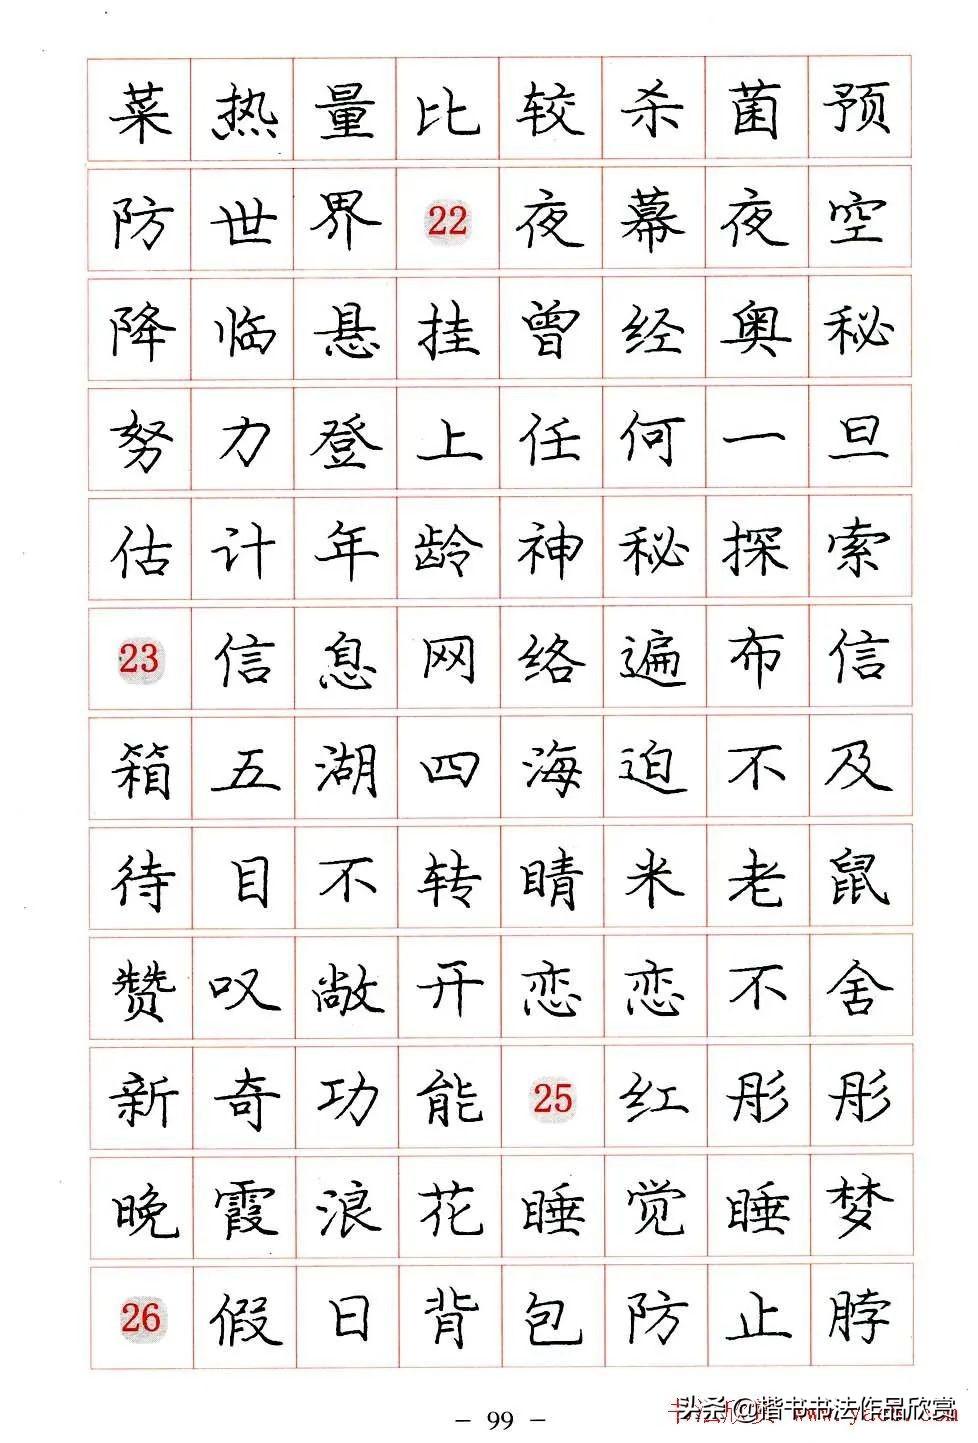 菜热量比较杀菌预
防世界22夜幕夜空
降临悬挂曾经奥秘
努力登上任何一旦
估计年龄神秘探索
23信息网络遍布信
箱五湖四海迫不及
待目不转睛米老鼠
赞叹敞开恋恋不舍
新奇功能25红彤彤
晚霞浪花睡觉睡梦
26假日背包防止脖
- 99 -
头条@楷书书法作品欣赏